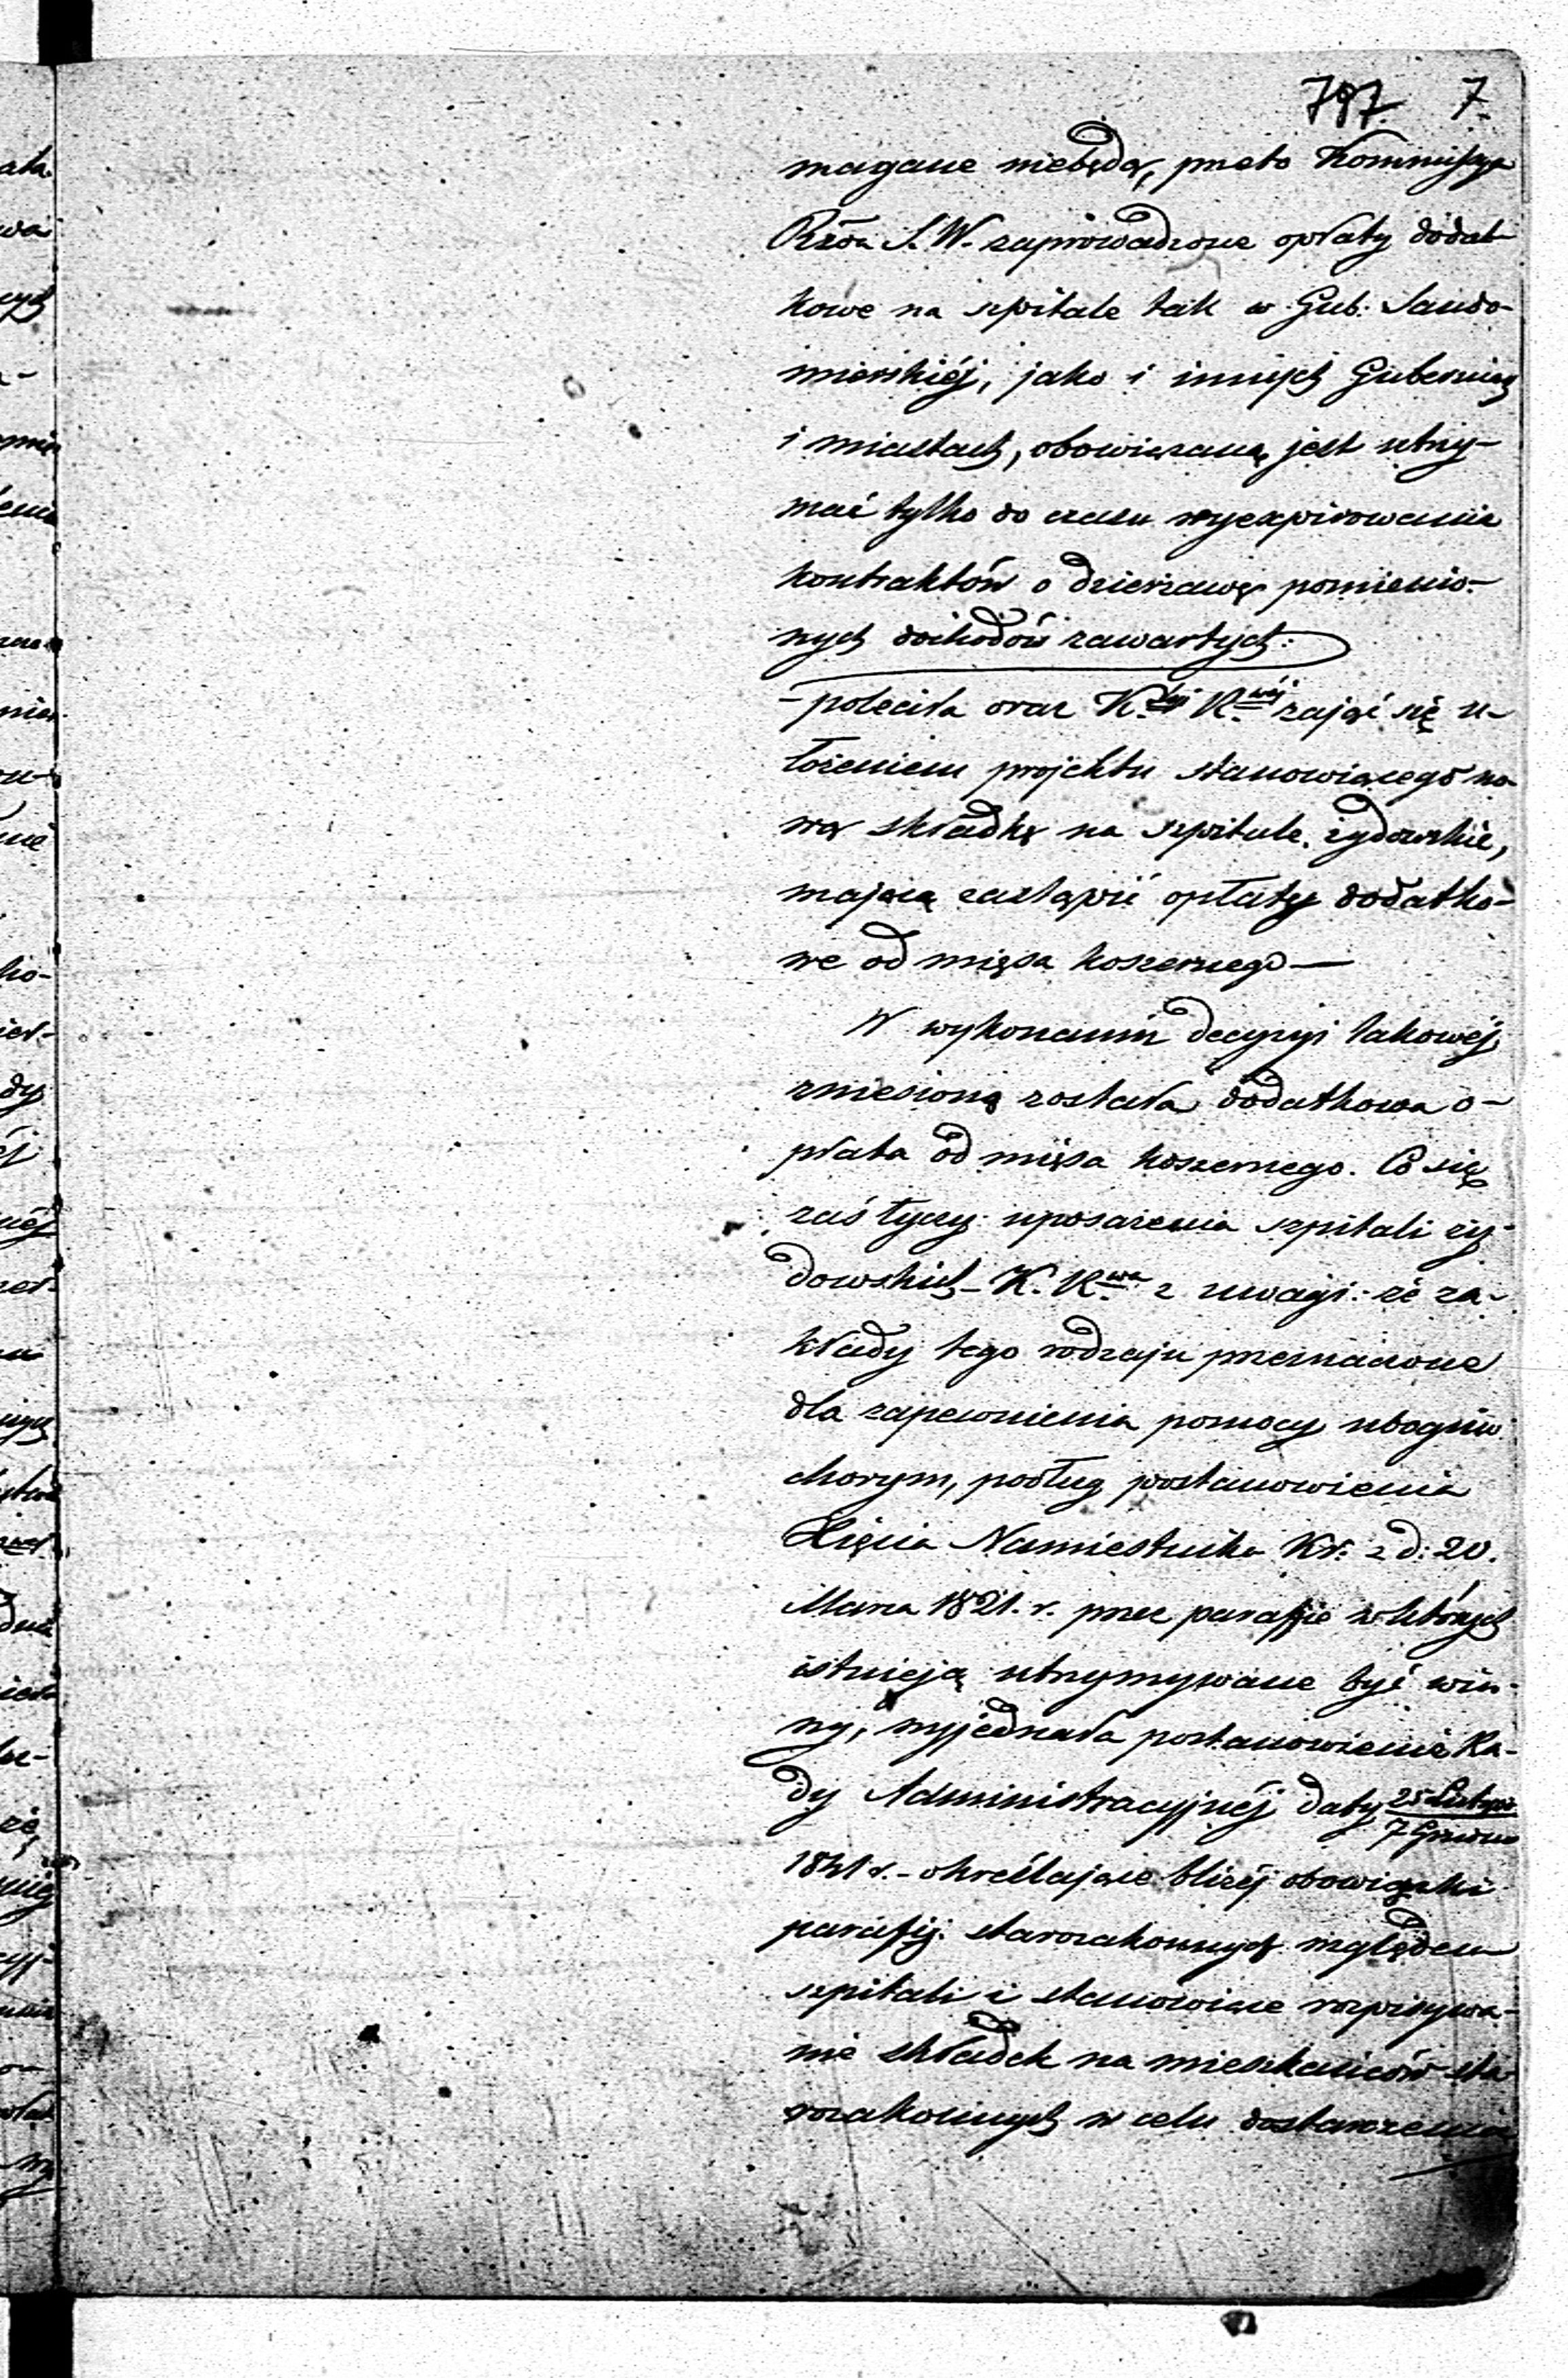 797 7.
magane niebędą, przeto Kommissya
Rzowa S. W. zaprowadzone opłaty dodat-
kowe na szpitale tak w Gub: Sando-
mierskiéj, jako i innych Guberniach
i miastach, obowiązaną jest utrzy-
mać tylko do czasu wyexpirowania
kontraktów o dzierzawę pomienio-
nych dochodów zawartych:
- poleciła oraz K. R.wéj zająć się u-
łożeniem projektu stanowiącego no-
wą składkę na szpitale żydowskie,
mającą zastąpić opłaty dodatko-
we od mięsa koszernego —
W wykonaniu decyzyi takowéj,
zniesioną została dodatkowa o-
płata od mięsa koszernego. Co się
zaś tyczy uposażenia szpitali ży-
dowskich - K. R.wa z uwagi: że za-
kłady tego rodzaju przeznaczone
dla zapewnienia pomocy ubogim
chorym, podług postanowienia
Xięcia Namiestnika Kr: z d: 20.
Marca 1821. r. przez parafie w których
istnieją utrzymywane być win-
ny, wyjednała postanowienie Ra-
dy Administracyjnéj daty 25 Listop
7 Grudnia
1841 r. - określające bliżéj obowiązki
parafij starozakonnych względem
szpitali i stanowiące rozpisywa-
nie składek na mieszkańców sta-
rozakonnych w celu dostarczenia